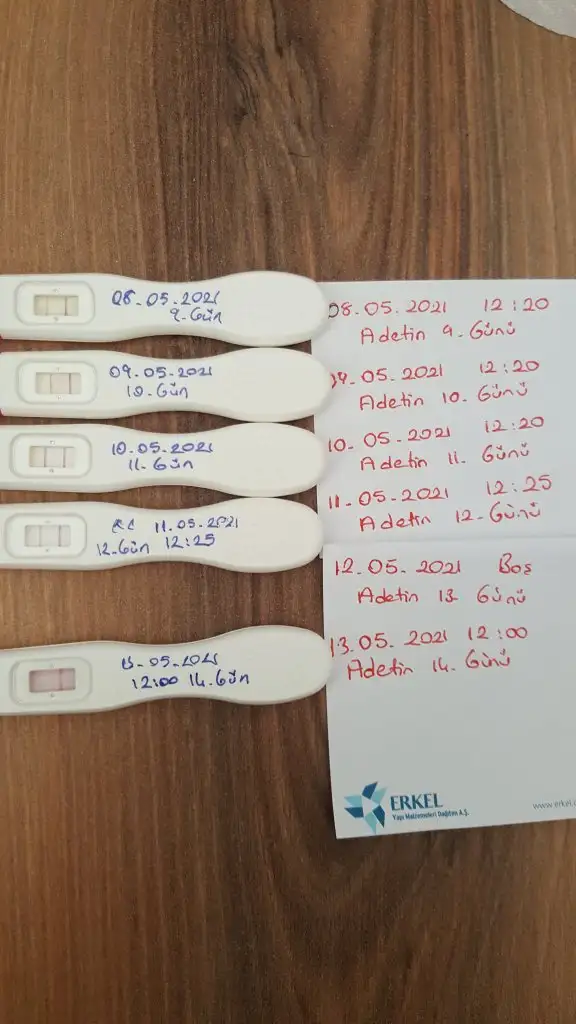 08.05.2021
9.Gün
09.05.2021
10.Gün
10.05.2021
11.Gün
11.05.2021
12.Gün 12:25
13.05.2021
12:00 14.Gün
08.05.2021 12:20
Adetin 9.Günü
09.05.2021 12:20
Adetin 10.Günü
10.05.2021 12:20
Adetin 11.Günü
11.05.2021 12:25
Adetin 12.Günü
12.05.2021 Boş
Adetin 13 Günü
13.05.2021 12:00
Adetin 14.Günü
ERKEL
Yapı Malzemeleri Dağıtım A.Ş.
www.erkel.